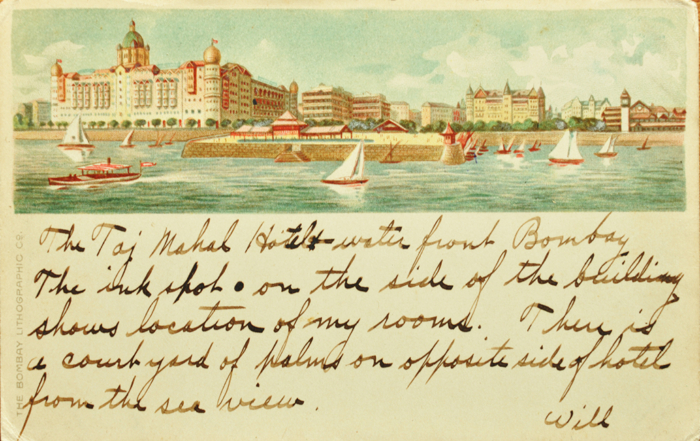 The Taj Mahal Hotel - water front Bombay
The ink spot • on the side of the building
shows location of my rooms. There is
a court yard of palms on opposite side of hotel
from the sea view.
Will
THE BOMBAY LITHOGRAPHIC CO.